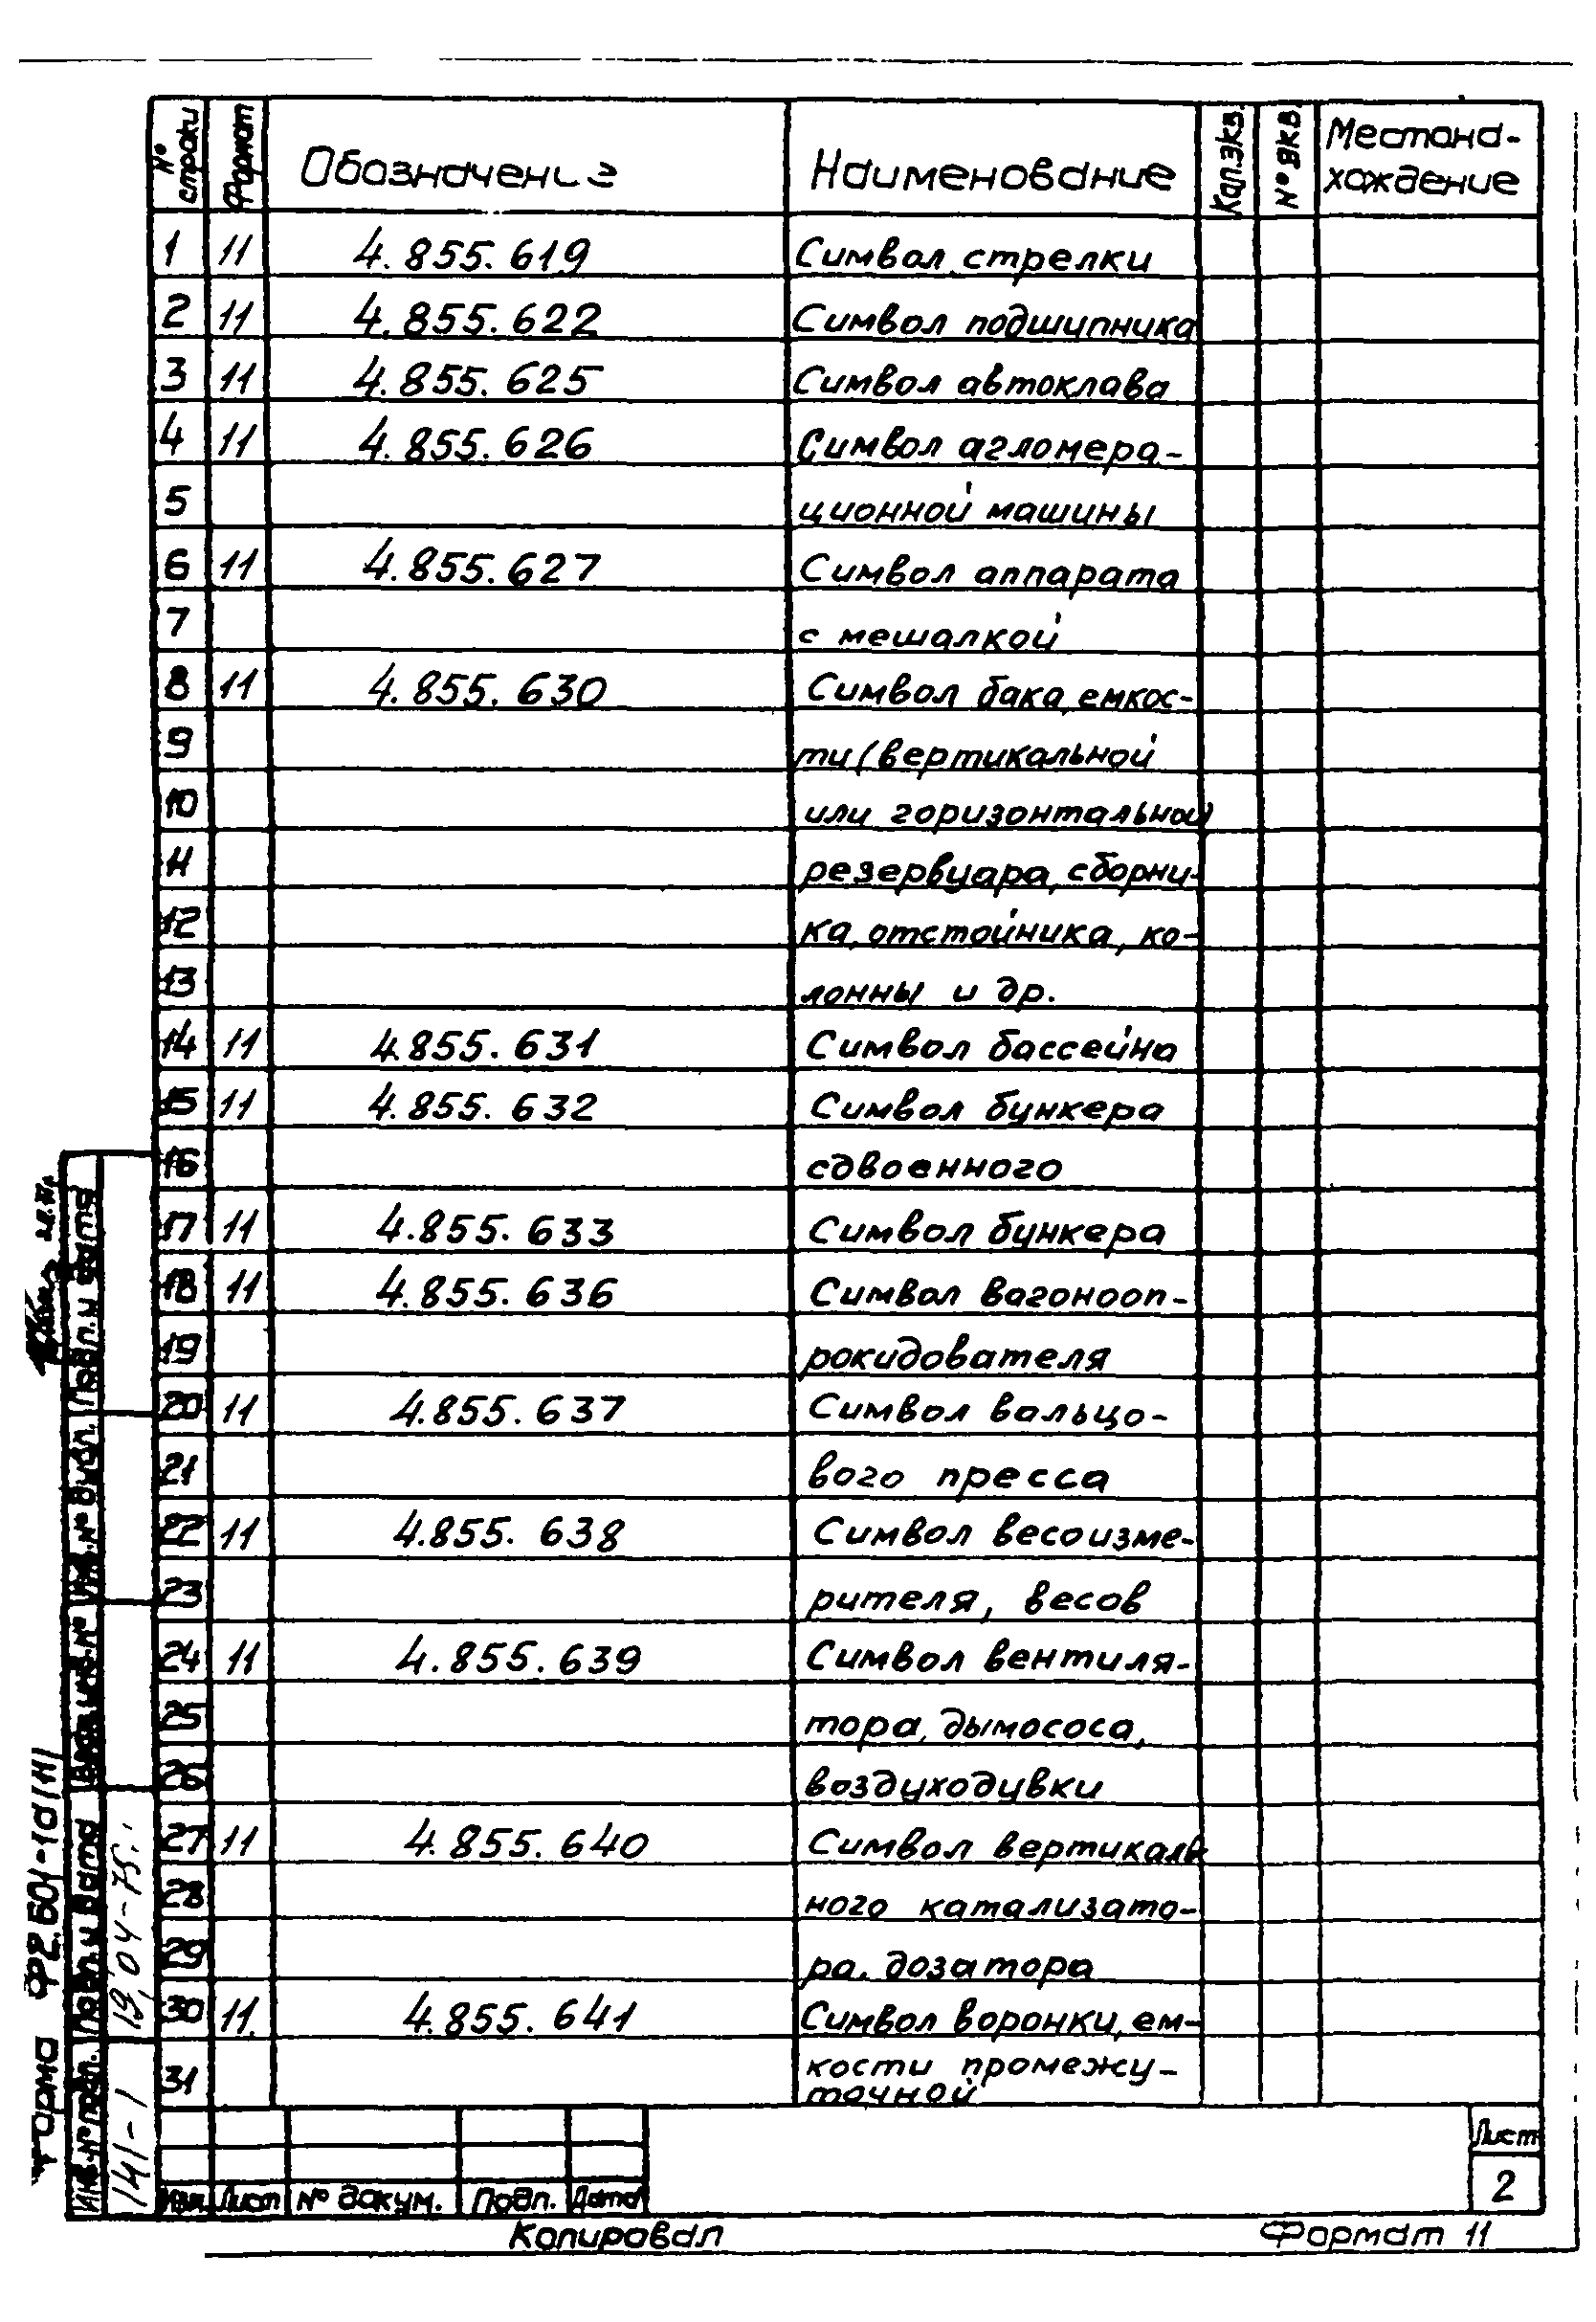 № строки Формат Обозначение Наименование Кол.экз. № экз. Местона-
хождение
1 11 4.855.619 Символ стрелки
2 11 4.855.622 Символ подшипника
3 11 4.855.625 Символ автоклава
4 11 4.855.626 Символ агломера-
5 ционной машины
6 11 4.855.627 Символ аппарата
7 с мешалкой
8 11 4.855.630 Символ бака, емкос-
9 ти (вертикальной
10 или горизонтальной)
11 резервуара, сборни-
12 ка, отстойника, ко-
13 лонны и др.
14 11 4.855.631 Символ бассейна
15 11 4.855.632 Символ бункера
16 сдвоенного
17 11 4.855.633 Символ бункера
18 11 4.855.636 Символ вагонооп-
19 рокидователя
20 11 4.855.637 Символ вальцо-
21 вого пресса
22 11 4.855.638 Символ весоизме-
23 рителя, весов
24 11 4.855.639 Символ вентиля-
25 тора, дымососа,
26 воздуходувки
27 11 4.855.640 Символ вертикаль
28 ного катализато-
29 ра, дозатора
30 11 4.855.641 Символ воронки, ем-
31 кости промежу-
точной
Изм. Лист № докум. Подп. Дата
Лист
2
Копировал Формат 11
Форма Ф2.601-1а(Н)
Инв. № подл. Подп. и дата Взам. инв. № Инв. № дубл. Подп. и дата
141-1 19.04-75.